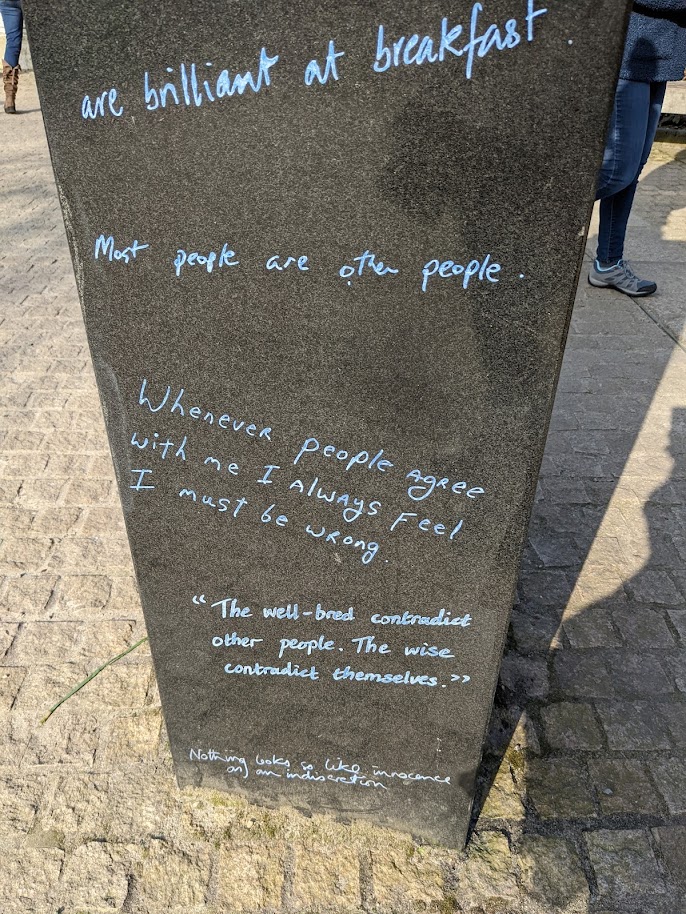 are brilliant at breakfast.
Most people are other people.
Whenever people agree
with me I always feel
I must be wrong.
“The well-bred contradict
other people. The wise
contradict themselves.”
Nothing looks so like innocence
as an indiscretion